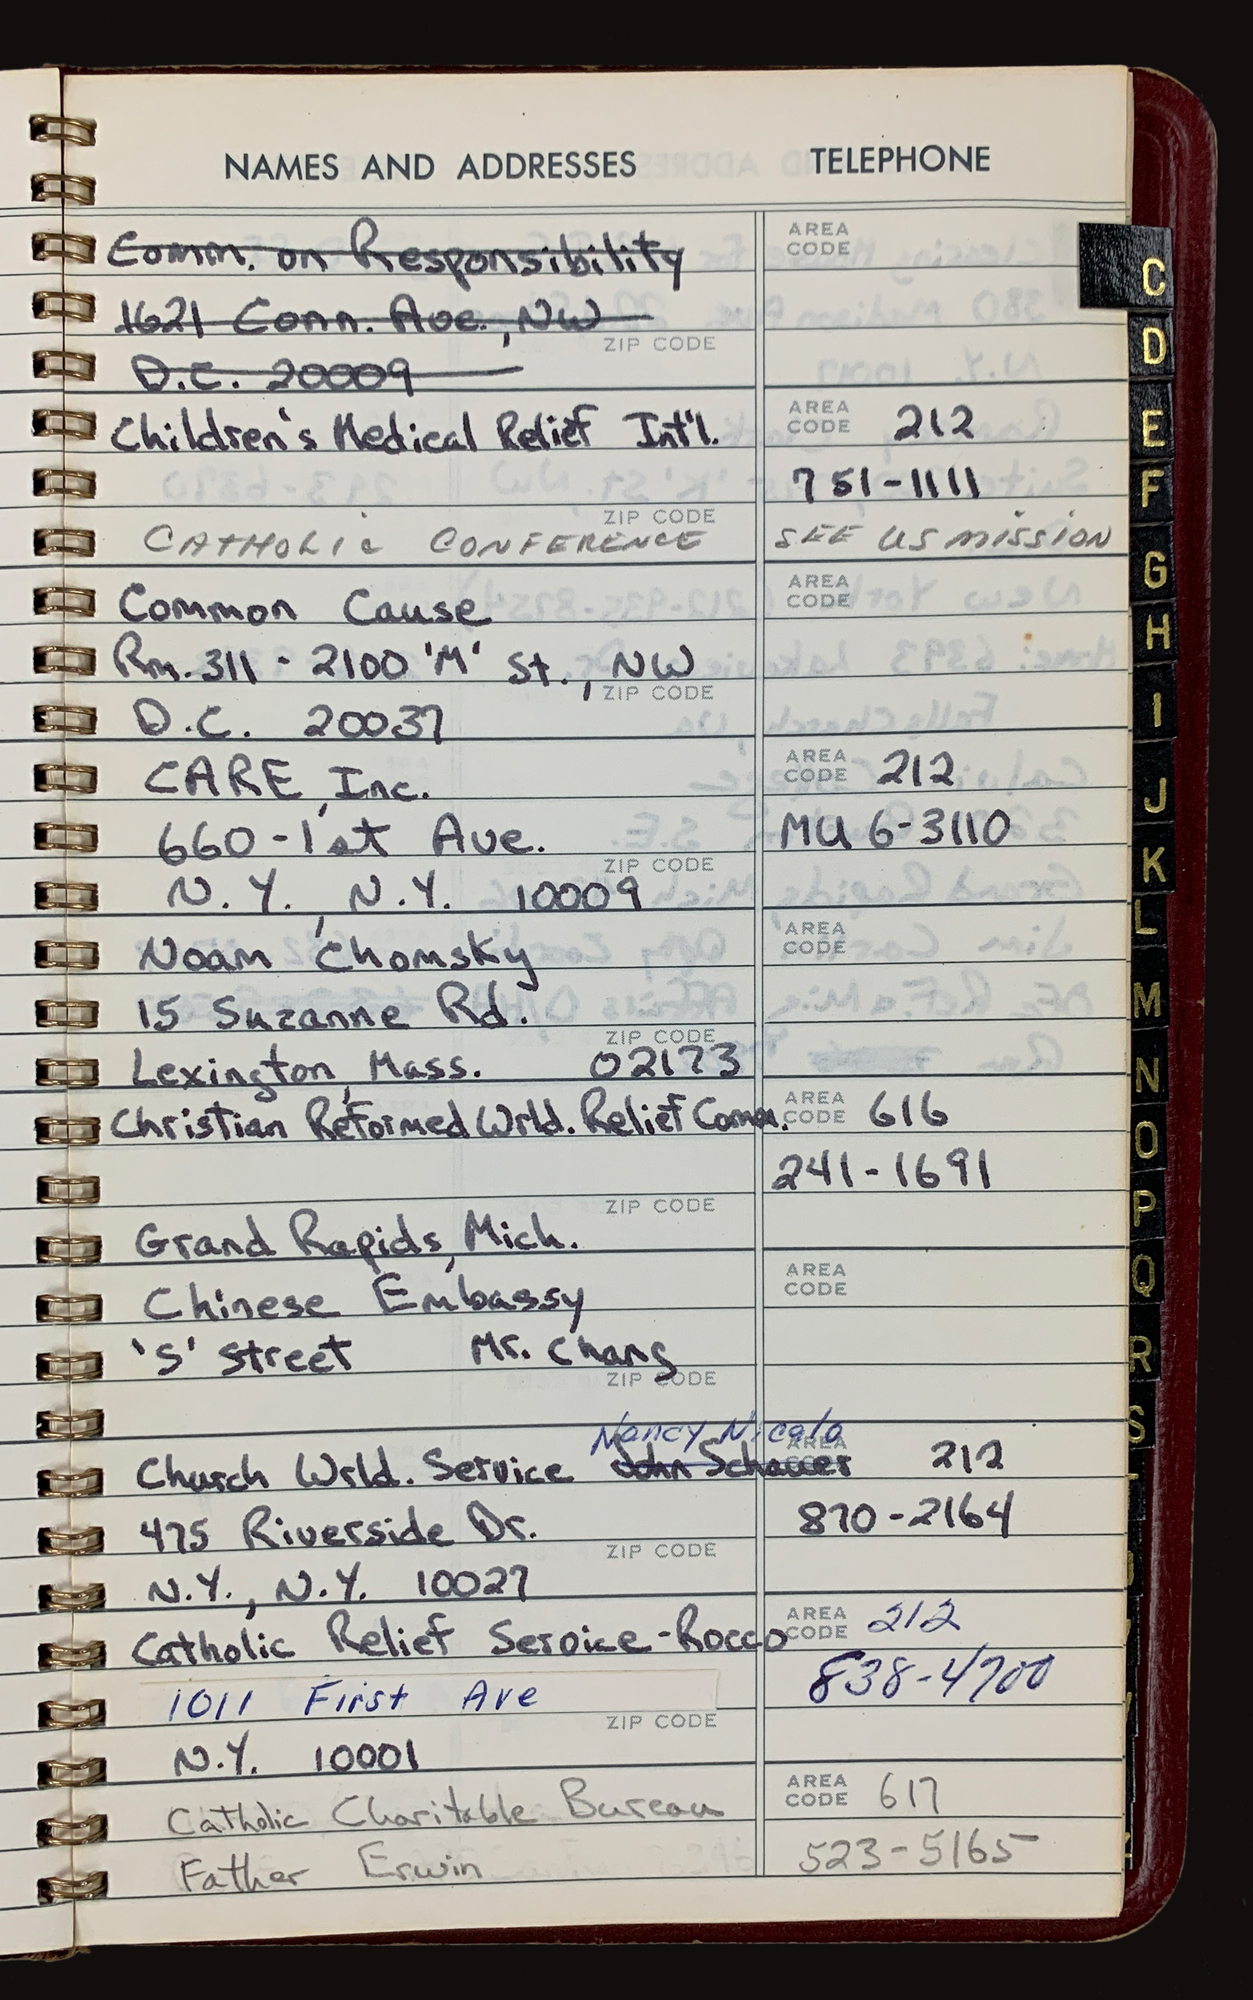 NAMES AND ADDRESSES TELEPHONE
Comm. on Responsibility AREA CODE
1621 Conn. Ave., NW
ZIP CODE
D.C. 20009
Children's Medical Relief Int'l. AREA CODE 212
751-1111
ZIP CODE
CATHOLIC CONFERENCE SEE US MISSION
Common Cause AREA CODE
Rm. 311 - 2100 'M' St., NW
ZIP CODE
D.C. 20037
CARE, Inc. AREA CODE 212
660 - 1st Ave. MU 6-3110
ZIP CODE
N.Y., N.Y. 10009
Noam Chomsky AREA CODE
15 Suzanne Rd.
ZIP CODE
Lexington, Mass. 02173
Christian Reformed Wrld. Relief Comm. AREA CODE 616
241-1691
ZIP CODE
Grand Rapids, Mich.
Chinese Embassy AREA CODE
'S' Street Mr. Chang
ZIP CODE
Nancy Nicalo
Church Wrld. Service John Schauer AREA CODE 212
475 Riverside Dr. 870-2164
ZIP CODE
N.Y., N.Y. 10027
Catholic Relief Service-Rocco AREA CODE 212
1011 First Ave 838-4700
ZIP CODE
N.Y. 10001
Catholic Charitable Bureau AREA CODE 617
Father Erwin 523-5165
C
D
E
F
G
H
I
J
K
L
M
N
O
P
Q
R
S